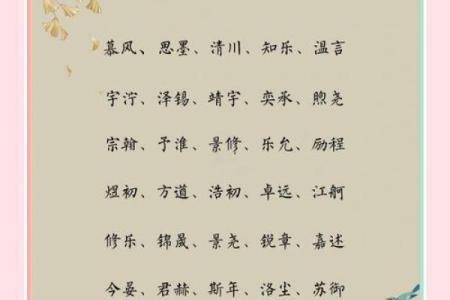 慕风、思墨、清川、知乐、温言
宇泞、泽锡、靖宇、奕承、煦尧
宗翰、予淮、景修、乐允、励程
煜初、方道、浩初、卓远、江舸
修乐、锦晟、景尧、锐章、嘉述
今晏、君赫、斯年、洛尘、苏御